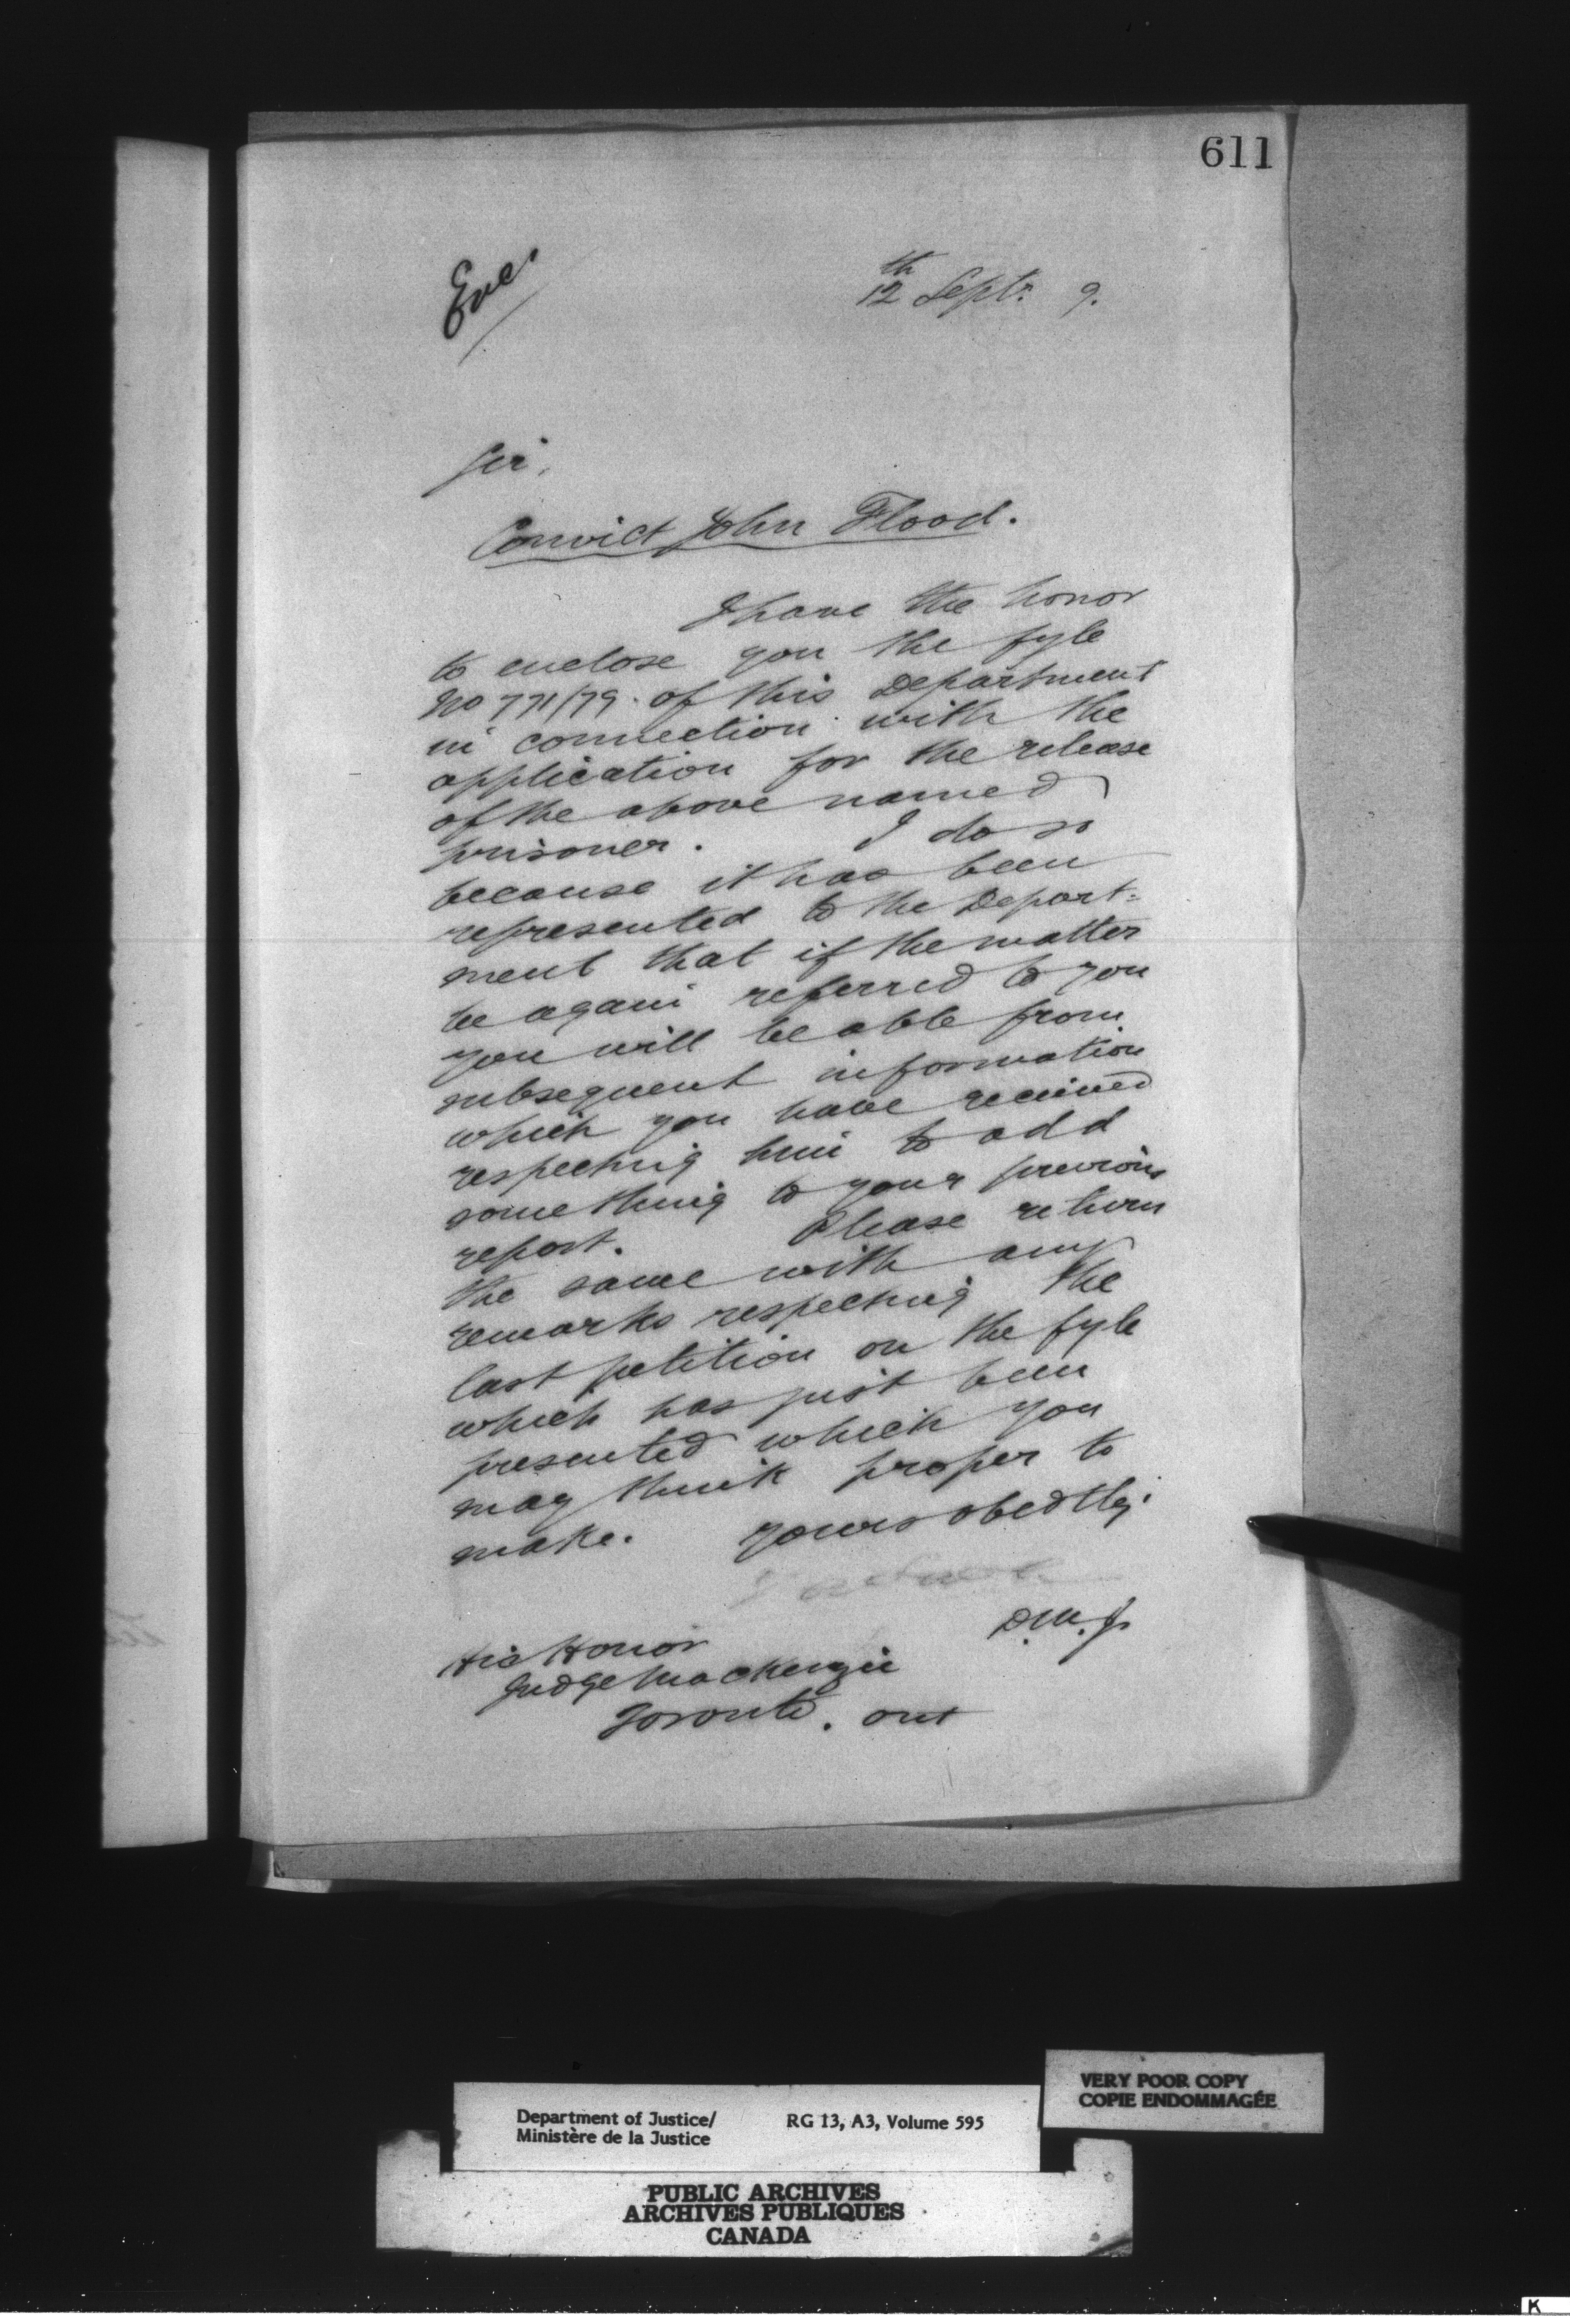 611
Enc.
12th Sept. 9.
Sir,
Convict John Flood.
I have the honor
to enclose you the fyle
No 771/79. of this Department
in connection with the
application for the release
of the above named
prisoner. I do so
because it has been
represented to the Depart=
ment that if the matter
be again referred to you
you will be able from
subsequent information
which you have received
respecting him to add
something to your previous
report. Please return
the same with any
remarks respecting the
last petition on the fyle
which has just been
presented which you
may think proper to
make. Yours obedtly.
D.M.J.
His Honor
Judge MacKenzie
Toronto. Ont
VERY POOR COPY
COPIE ENDOMMAGÉE
Department of Justice/ RG 13, A3, Volume 595
Ministère de la Justice
PUBLIC ARCHIVES
ARCHIVES PUBLIQUES
CANADA
K